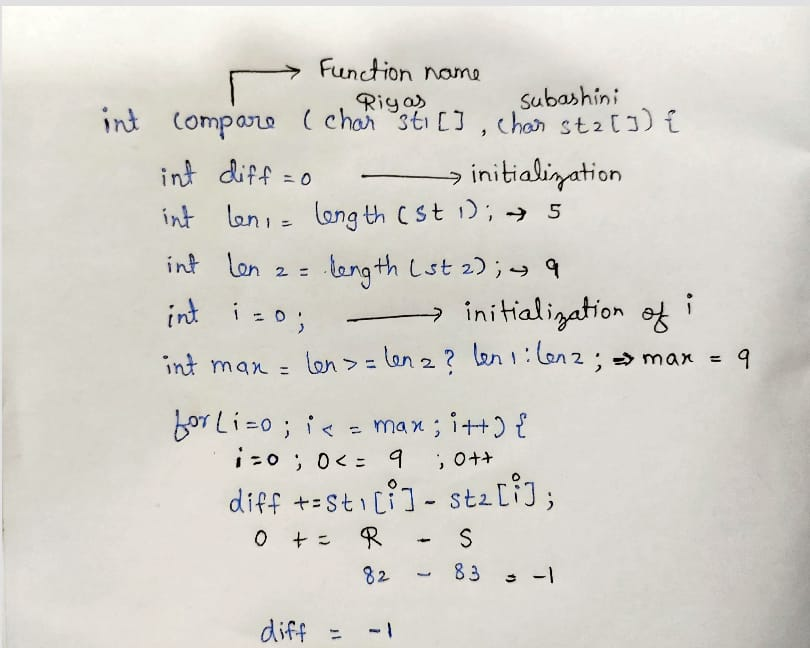 Function name
Riyas subashini
int compare ( char st1 [] , char st2 []) {
int diff = 0 → initialization
int len1 = length (st 1); → 5
int len 2 = length (st 2); → 9
int i = 0 ; → initialization of i
int max = len >= len 2 ? len 1 : len 2 ; ⇒ max = 9
for (i=0 ; i < = max ; i++) {
i=0 ; 0<= 9 ; 0++
0 0
diff += st1 [i] - st2 [i] ;
0 += R - S
82 - 83 = -1
diff = -1